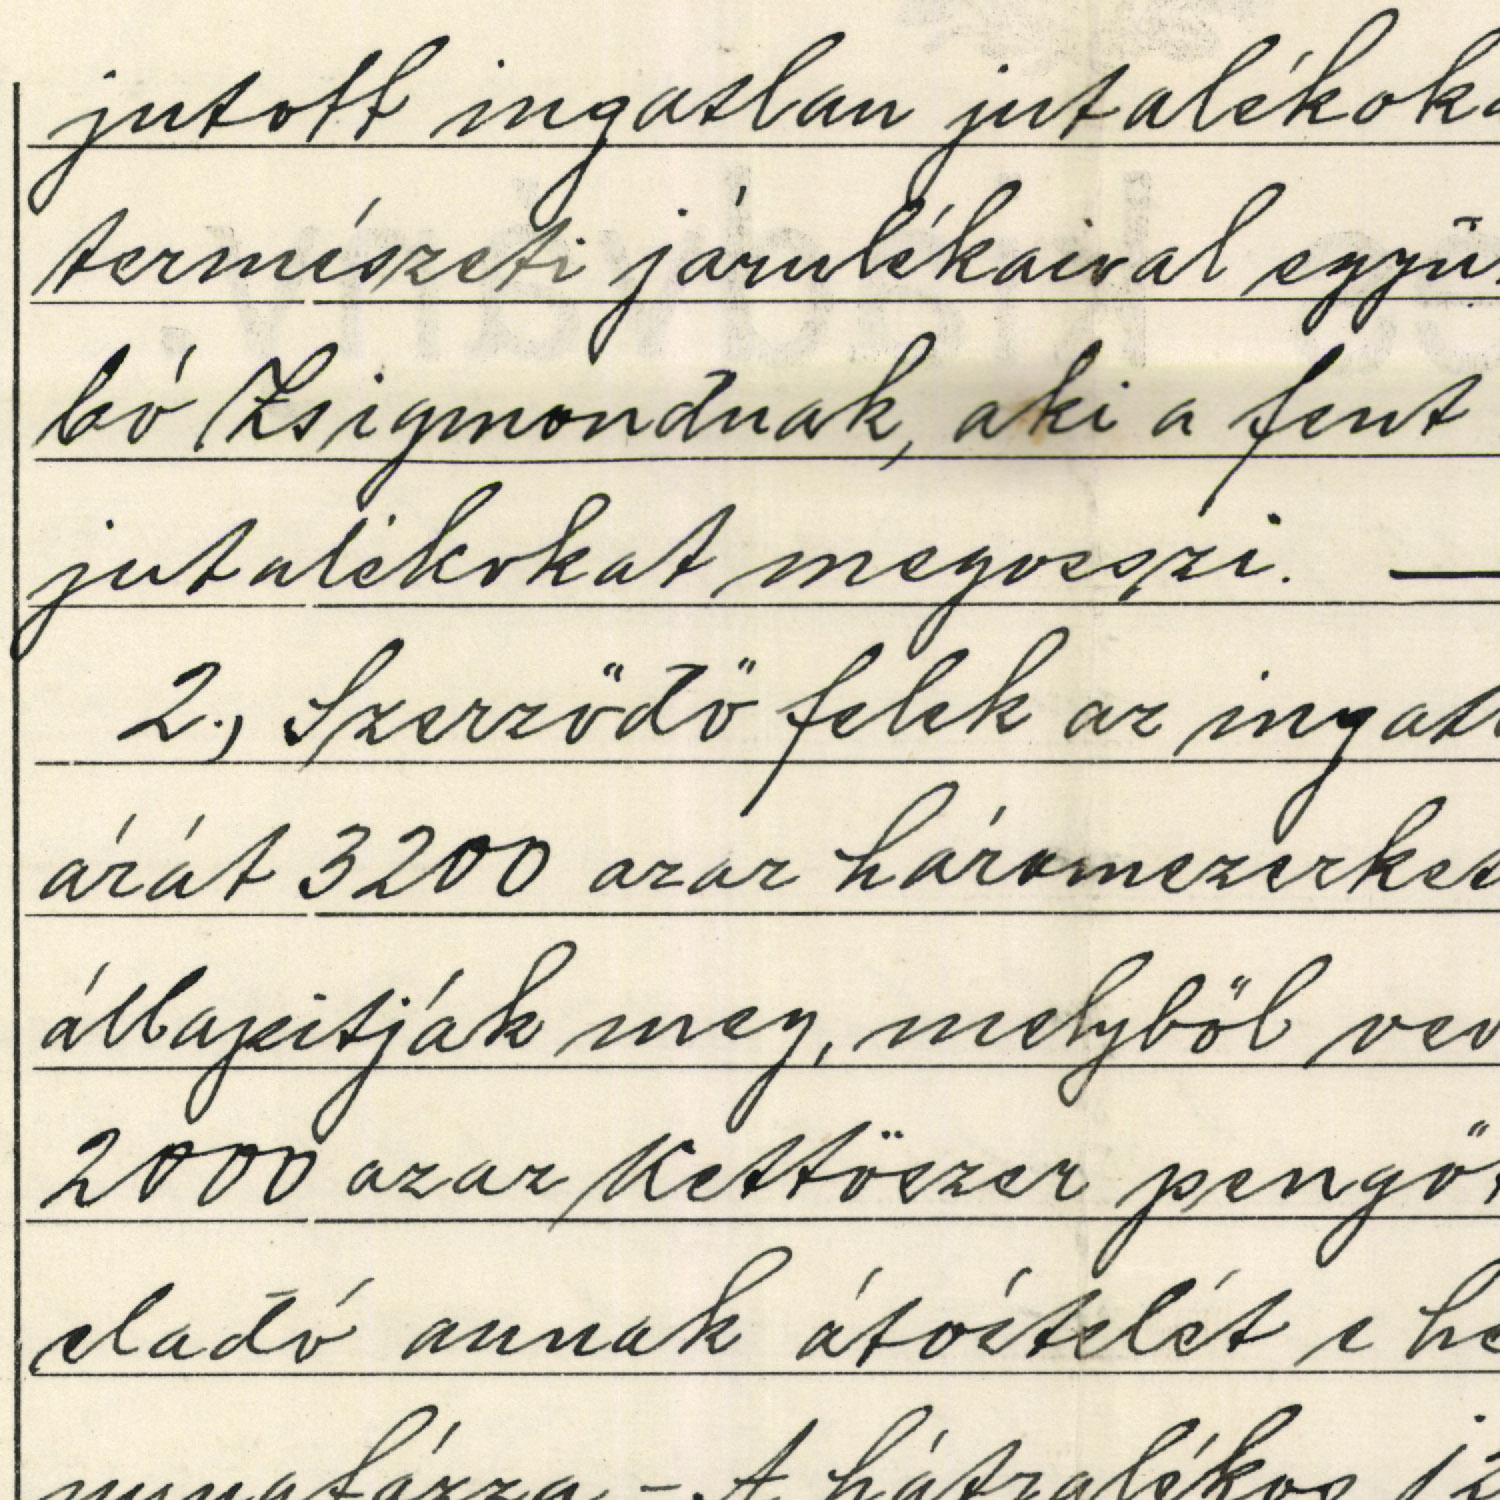 jutott ingatlan jutalékoka
természeti járulékaival együ
bó Zsigmondnak, aki a fent
jutalékokat megveszi. —
2., Szerződő felek az ingatl
árát 3200 azaz háromezerket
állapitják meg, melyből vev
2000 azaz Kettőezer pengőt
eladó annak átvételét e he
nyugtázza - A hátralékos 12